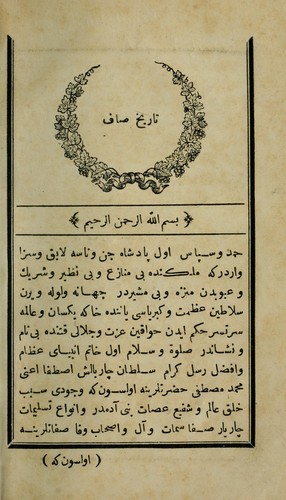 تاریخ صاف
بسم الله الرحمن الرحیم
حمد و سپاس اول پادشاه جن و ناسه لایق و سزا
واردرکه ملکنده بی منازع و بی نظیر و شریك
و عیوبدن منزه و بی مشیردر جهانه ولوله ویرن
سلاطین عظمت و کبریاسی یاننده خاکه یکسان و عالمه
سرتسر حکم ایدن خواقین عزت و جلالی قتنده بی نام
و نشاندر صلوة و سلام اول خاتم انبیای عظام
وافضل رسل کرام سلطان چاربالش اصطفا اعنی
محمد مصطفی حضرتلرینه اولسونکه وجودی سبب
خلق عالم و شفیع عصات بنی آدمدر و انواع تسلیمات
چاریار صفا سمات و آل و اصحاب وفا صفاتلرینه
( اولسون که )